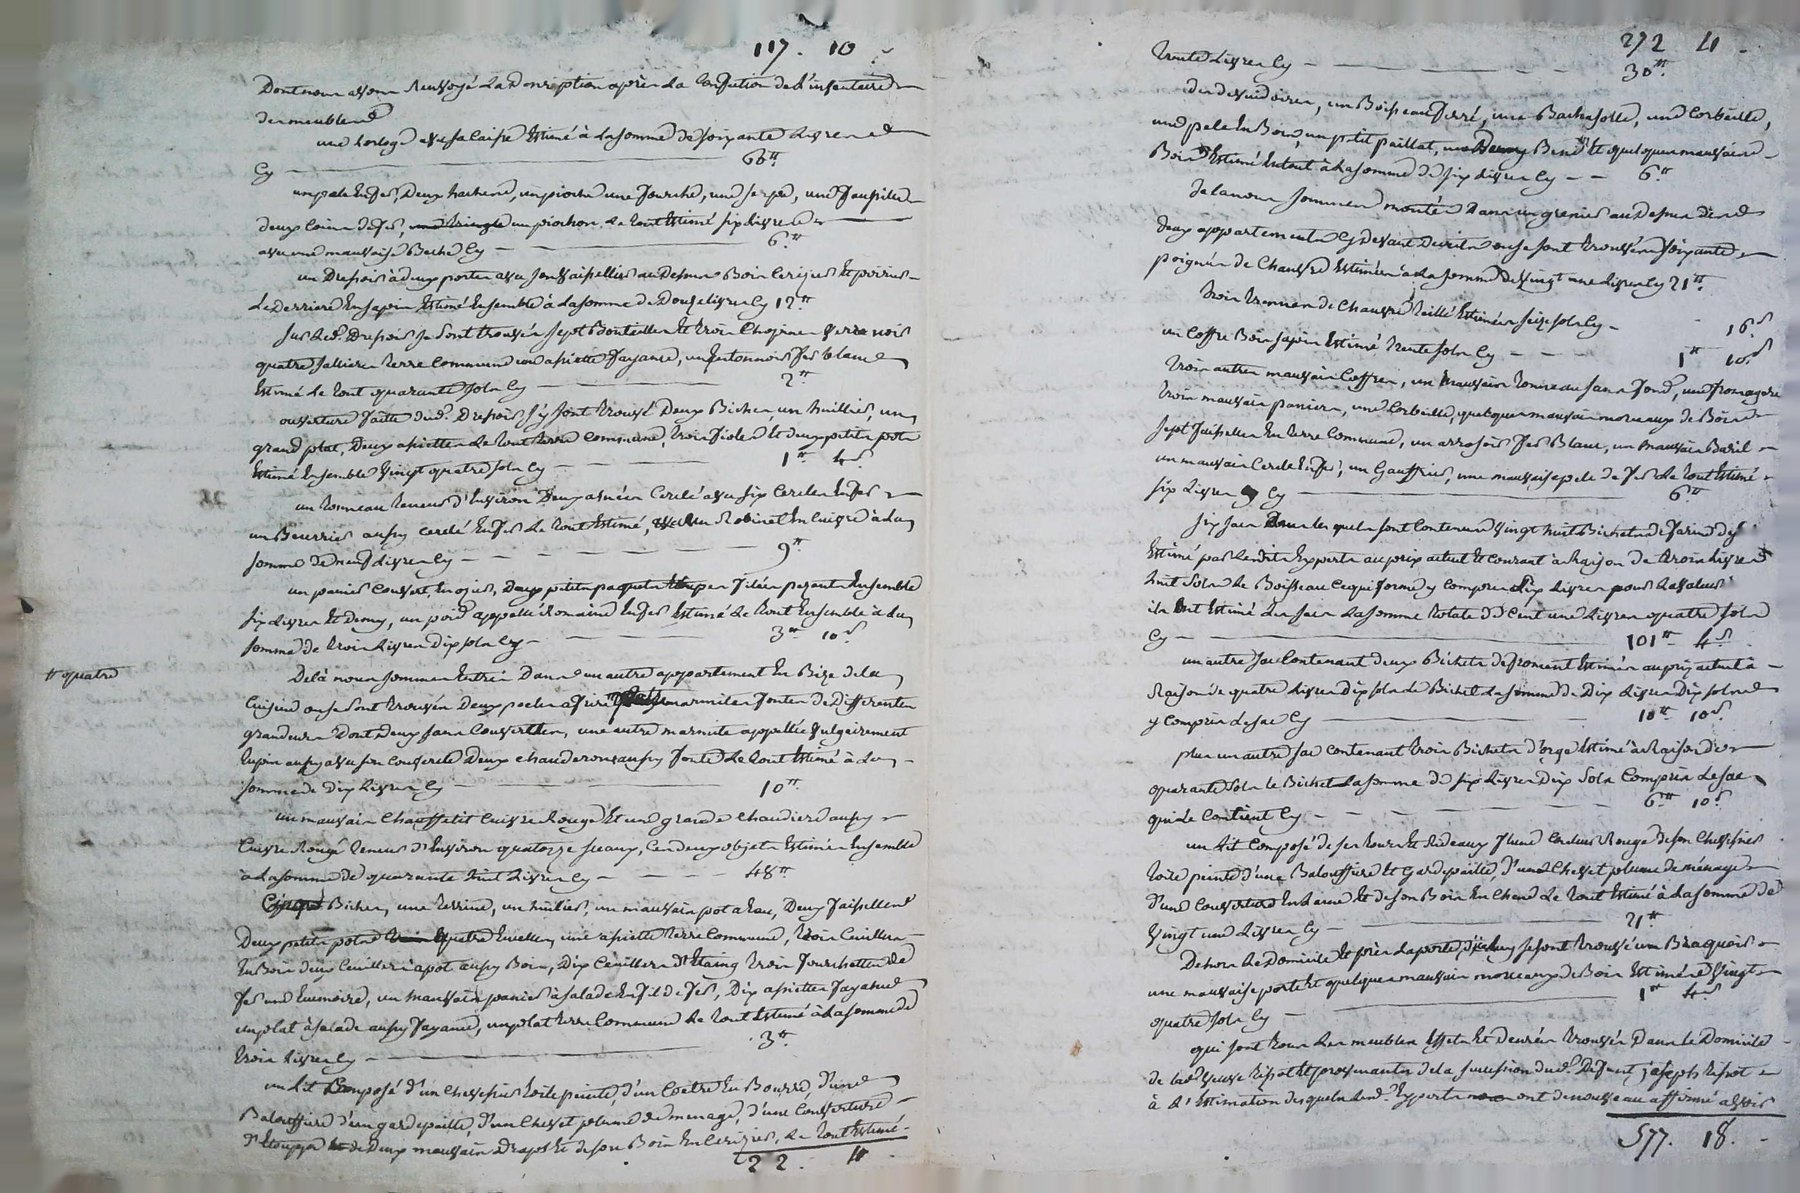 117. 10
Dont nous avons renvoyé la description après la confection de l'inventaire
des meubles
une horloge avec sa caisse Estimé à la somme de soixante Livres
Cy — 60tt
un pale En fer, Deux haches, un pioche une fourche, une serpe, une
deux coins de fer, un piochon le tout Estimé six Livres
avec une mauvaise Beche Cy — 6tt
un Dressoir à deux portes avec son vaissellier au Dessus Bois Cerisier Et poirier
Le derriere En sapin Estimé Ensemble à la somme de Douze Livres Cy 12tt
sur led. Dressoir se sont trouvés sept Bouteilles Et trois Chopines verre noir
quatre sallieres terre commune une assiette fayance, un Entonnoir fer blanc
Estimé le tout quarante sols Cy — 2tt
ouverture faitte dud. Dressoir s'y sont trouvé Deux Biches, un huillier, un
grand plat, Deux assiettes le tout terre commune, trois fioles Et deux petits pots
Estimé Ensemble vingt quatre sols Cy — 1tt 4s
un tonneau teneur d'Environ Deux anées Cerclé avec six cercles En fer
un Beurrier aussy cerclé En fer le tout Estimé, avec un Robinet En cuivre à la
somme de neuf Livres Cy — 9tt
un panier couvert, En osier, Deux petits paquets filés pezants Ensemble
six Livres Et Demy, un poid appellé Romaine En fer Estimé le tout Ensemble à la
somme de trois Livres Dix sols Cy — 3tt 10s
tt quatre
Delà nous sommes Entrés Dans un autre appartement En Bize de la
Cuisine ou se sont trouvés Deux poeles a frire tt marmites fontes de Differentes
grandeurs Dont Deux sans Couvertles, une autre marmite appellée vulgairement
Tupin aussy avec son couvercle Deux chauderons aussy fonte le tout Estimé à la
somme de Dix Livres Cy — 10tt
un mauvais Chauffelit Cuivre Rouge Et une grande Chaudiere aussy
Cuivre Rouge teneur d'Environ quatorze seaux, Ces deux objets Estimés Ensemble
à la somme de quarante huit Livres Cy — 48tt
Biches, une terrine, un huilier, un mauvais pot a Eau, Deux faisselles
Deux petits pots quatre Ecuelles, une assiette terre Commune, trois Cuilliers
En Bois deux Cuilliers à pot aussy Bois, Dix Cuilliers D'Etaing trois fourchettes de
fer une Ecumoire, un mauvais panier à salade En fil de fer, Dix assiettes fayance
un plat à salade aussy fayance, un plat terre Commune le tout Estimé à la somme de
trois Livres Cy — 3tt
un Lit Composé d'un Chevessier toile peinte, d'un Coetre En Bourre, d'une
Balouffiere d'un gardepaille, d'un Chevet plume de menage, d'une Couverture
d'Etouppe Et de Deux mauvais draps Et de son Bois En Cerizier, le tout Estimé
272 4
trente Livres Cy — 30tt
des devidoires, un Boisseau ferré, une Bachasolle, une Corbeille,
une pele En Bois, un petit paillat, un Benot Et quelques mauvais
Bois Estimé En tout à la somme de six Livres Cy — 6tt
De la nous sommes montés Dans un grenier au Dessus des
deux appartements Cy devant Decrits ou se sont trouvées soixante
poignées de Chanvre Estimées à la somme de vingt une Livres Cy 21tt
trois de Chanvre Teillé Estimées seize sols Cy — 16s
un Coffre Bois sapin Estimé trente sols Cy — 1tt 10s
trois autres mauvais Coffres, un mauvais tonneau sans fond, une fromagere
trois mauvais paniers, une Corbeille, quelques mauvais morceaux de Bois
sept faisselles En terre Commune, un arrosoir fer Blanc, un mauvais Baril
un mauvais Cercle En fer, un Gauffrier, une mauvaise pele de fer le tout Estimé
six Livres Cy — 6tt
six sacs Dans lesquels sont Contenus vingt huit Bichets de farine
Estimé par lesdits Experts au prix actuel Et courant à Raison de trois Livres
huit sols le Boisseau Ce qui forme y compris six Livres pour la valeur
Estimé les sacs la somme totale de Cent une Livres quatre sols
Cy — 101tt 4s
un autre sac Contenant deux Bichets de froment Estimés au prix actuel à
Raison de quatre Livres Dix sols le Bichet la somme de Dix Livres Dix sols
y Compris le sac Cy — 10tt 10s
plus un autre sac Contenant trois Bichets d'orge Estimé à Raison de
quarante sols le Bichet la somme de six Livres Dix sols Compris le sac
qui Le Contient Cy — 6tt 10s
un Lit Composé de ses tours Et Rideaux d'une Couleur Rouge de son Chevessier
toile peinte d'une Balouffiere Et gardepaille, d'un Chevet plume de ménage
d'une Couverture En Laine Et de son Bois En Chene le tout Estimé à la somme de
vingt une Livres Cy — 21tt
Dehors le Domicile Et près la porte d'iceluy se sont trouvé un
une mauvaise porte Et quelques mauvais morceaux de Bois Estimés vingt
quatre sols Cy — 1tt 4s
qui sont tous les meubles Effets Et Denrées trouvés Dans le Domicile
de lad. veuve Et provenants de la succession dud. Défunt joseph
à L'Estimation desquels lesd. Experts ont de nouveau affirmé avoir
577. 18.